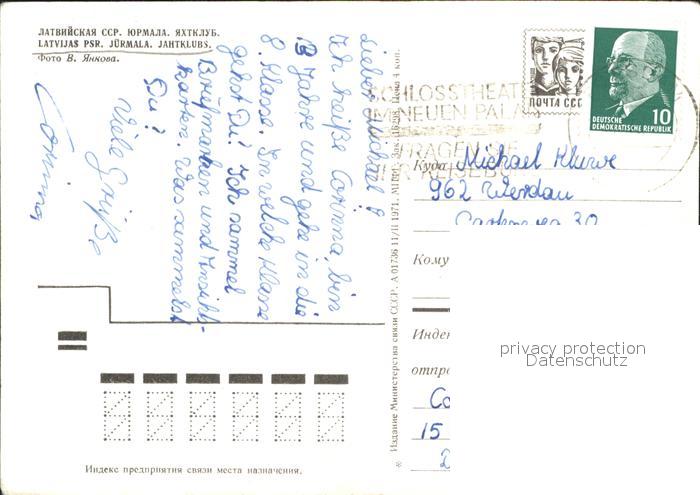 ЛАТВИЙСКАЯ ССР. ЮРМАЛА. ЯХТКЛУБ.
LATVIJAS PSR. JŪRMALA. JAHTKLUBS.
Фото В. Янкова.
Lieber Michael!
Ich heiße Corinna, bin
13 Jahre und gehe in die
8. Klasse. In welche Klasse
gehst Du? Ich sammel
Briefmarken und Ansichts-
karten. Was sammelst
Du?
Viele Grüße
Corinna
Индекс предприятия связи места назначения.
* Издание Министерства связи СССР. А 01736 11/II 1971. Цена 4 коп.
ПОЧТА СССР
DEUTSCHE
DEMOKRATISCHE REPUBLIK
10
SCHLOSSTHEATER
IM NEUEN PALAIS
FRAGEN SIE
IHR REISEBÜRO
Куда Michael Kluwe
962 Werdau
30
Кому
Индек
отпра
Co
15
privacy protection
Datenschutz